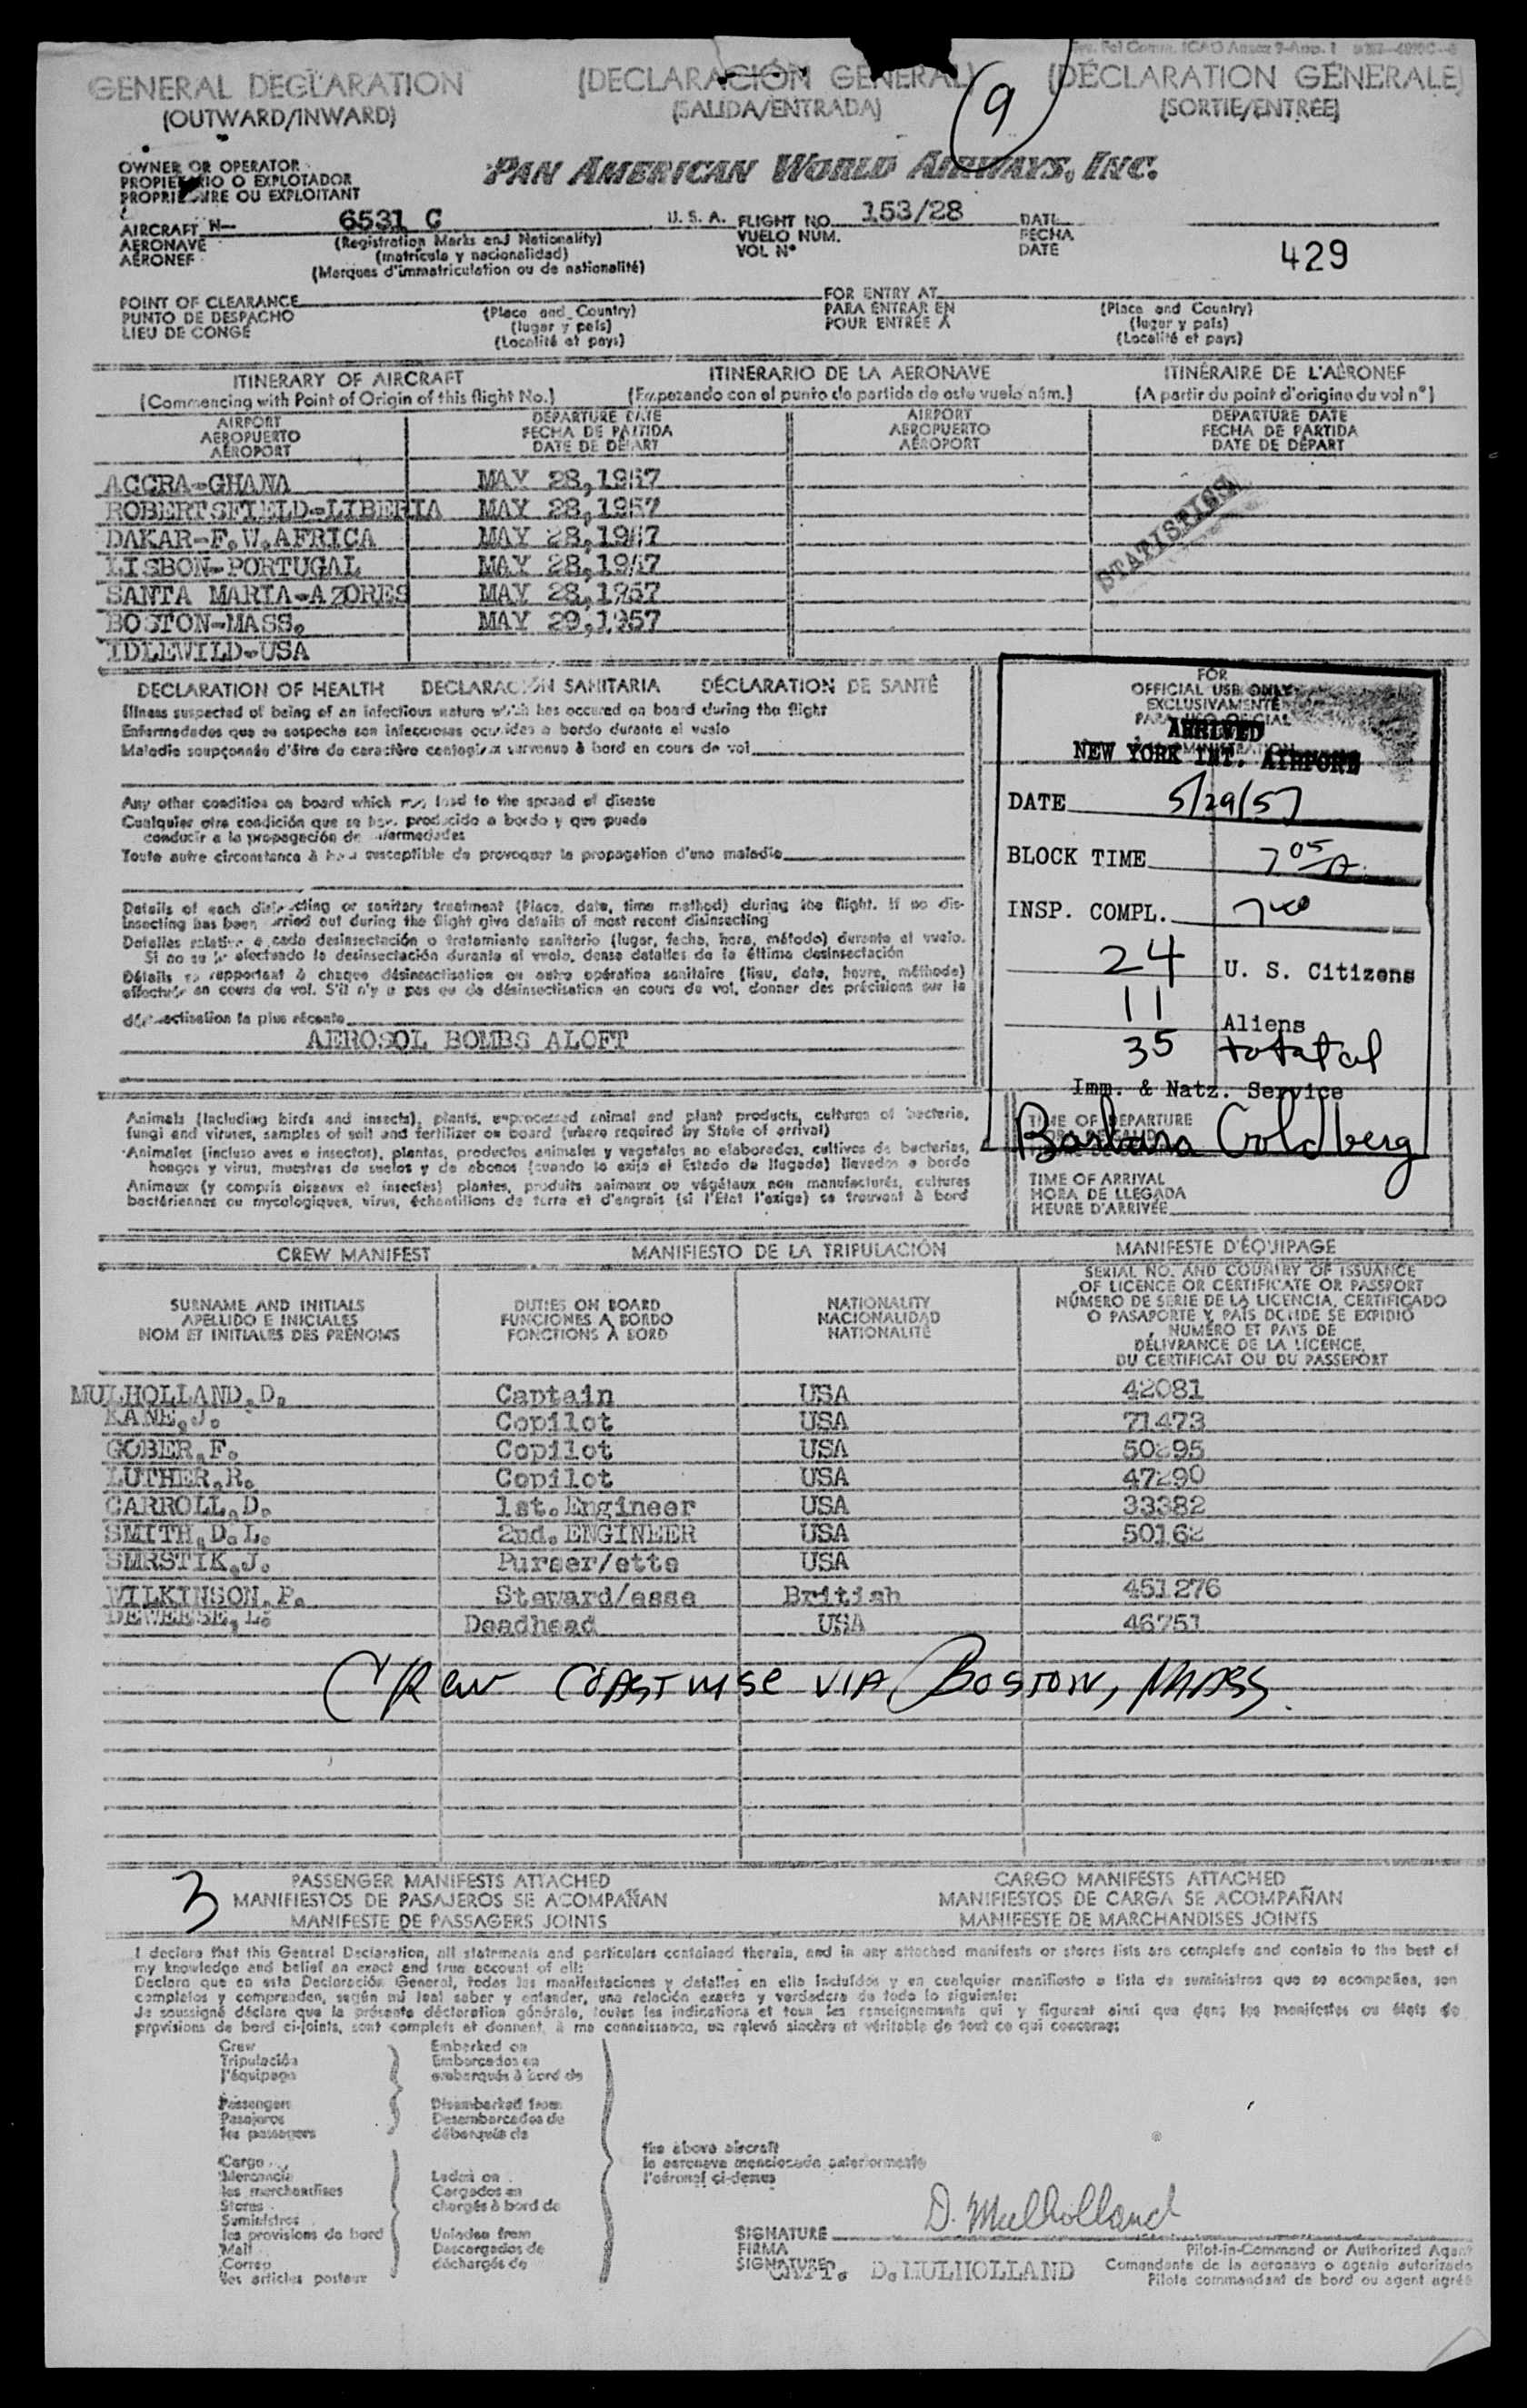 GENERAL DECLARATION (DECLARACIÓN GENERAL) (DÉCLARATION GÉNÉRALE)
(OUTWARD/INWARD) (SALIDA/ENTRADA) (SORTIE/ENTRÉE)
(9)
OWNER OR OPERATOR
PROPIETARIO O EXPLOTADOR
PROPRIETAIRE OU EXPLOITANT
PAN AMERICAN WORLD AIRWAYS, INC.
AIRCRAFT N— 6531 C U. S. A. FLIGHT NO. 153/28 DATE
AERONAVE (Registration Marks and Nationality) VUELO NÚM. FECHA
AÉRONEF (matrícula y nacionalidad) VOL Nº DATE 429
(Marques d'immatriculation ou de nationalité)
POINT OF CLEARANCE FOR ENTRY AT
PUNTO DE DESPACHO (Place and Country) PARA ENTRAR EN (Place and Country)
LIEU DE CONGÉ (lugar y país) POUR ENTRÉE À (lugar y país)
(Localité et pays) (Localité et pays)
ITINERARY OF AIRCRAFT ITINERARIO DE LA AERONAVE ITINÉRAIRE DE L'AÉRONEF
(Commencing with Point of Origin of this flight No.) (Empezando con el punto de partida de este vuelo núm.) (A partir du point d'origine du vol nº)
AIRPORT DEPARTURE DATE AIRPORT DEPARTURE DATE
AEROPUERTO FECHA DE PARTIDA AEROPUERTO FECHA DE PARTIDA
AÉROPORT DATE DE DÉPART AÉROPORT DATE DE DÉPART
ACCRA-GHANA MAY 28,1957
ROBERTSFIELD-LIBERIA MAY 28,1957
DAKAR-F.W.AFRICA MAY 28,1957
LISBON-PORTUGAL MAY 28,1957
SANTA MARIA-AZORES MAY 28,1957
BOSTON-MASS. MAY 29,1957
IDLEWILD-USA
STATISTICS
DECLARATION OF HEALTH DECLARACIÓN SANITARIA DÉCLARATION DE SANTÉ
Illness suspected of being of an infectious nature which has occured on board during the flight
Enfermedades que se sospecha son infecciosas ocurridas a bordo durante el vuelo
Maladie soupçonnée d'être de caractère contagieux survenue à bord en cours de vol
Any other condition on board which may lead to the spread of disease
Cualquier otra condición que se haya producido a bordo y que pueda
conducir a la propagación de enfermedades
Toute autre circonstance à bord susceptible de provoquer la propagation d'une maladie
Details of each disinsecting or sanitary treatment (Place, date, time method) during the flight. If no dis-
insecting has been carried out during the flight give details of most recent disinsecting
Detalles relativos a cada desinsectación o tratamiento sanitario (lugar, fecha, hora, método) durante el vuelo.
Si no se ha efectuado la desinsectación durante el vuelo, dense detalles de la última desinsectación
Détails se rapportant à chaque désinsectisation ou autre opération sanitaire (lieu, date, heure, méthode)
effectuée en cours de vol. S'il n'y a pas eu de désinsectisation en cours de vol, donner des précisions sur la
désinsectisation la plus récente
AEROSOL BOMBS ALOFT
FOR
OFFICIAL USE ONLY
EXCLUSIVAMENTE
PARA USO OFICIAL
ARRIVED
NEW YORK INT. AIRPORT
DATE 5/29/57
BLOCK TIME 7 05 A
INSP. COMPL. 7 40
24 U. S. Citizens
11 Aliens
35 totatal
Imm. & Natz. Service
Barbara Goldberg
Animals (including birds and insects), plants, unprocessed animal and plant products, cultures of bacteria,
fungi and viruses, samples of soil and fertilizer on board (where required by State of arrival)
Animales (incluso aves e insectos), plantas, productos animales y vegetales no elaborados, cultivos de bacterias,
hongos y virus, muestras de suelos y de abonos (cuando lo exija el Estado de llegada) llevados a bordo
Animaux (y compris oiseaux et insectes) plantes, produits animaux ou végétaux non manufacturés, cultures
bactériennes ou mycologiques, virus, échantillons de terre et d'engrais (si l'État l'exige) se trouvant à bord
TIME OF DEPARTURE
TIME OF ARRIVAL
HORA DE LLEGADA
HEURE D'ARRIVÉE
CREW MANIFEST MANIFIESTO DE LA TRIPULACIÓN MANIFESTE D'ÉQUIPAGE
SURNAME AND INITIALS
APELLIDO E INICIALES
NOM ET INITIALES DES PRÉNOMS
DUTIES ON BOARD
FUNCIONES A BORDO
FONCTIONS À BORD
NATIONALITY
NACIONALIDAD
NATIONALITÉ
SERIAL NO. AND COUNTRY OF ISSUANCE
OF LICENCE OR CERTIFICATE OR PASSPORT
NÚMERO DE SERIE DE LA LICENCIA, CERTIFICADO
O PASAPORTE Y PAÍS DONDE SE EXPIDIÓ
NUMÉRO ET PAYS DE
DÉLIVRANCE DE LA LICENCE,
DU CERTIFICAT OU DU PASSEPORT
MULHOLLAND,D. Captain USA 42081
KANE,J. Copilot USA 71473
GOBER,F. Copilot USA 50895
LUTHER,R. Copilot USA 47290
CARROLL,D. 1st.Engineer USA 33382
SMITH,D.L. 2nd.ENGINEER USA 50162
SMRSTIK,J. Purser/ette USA
WILKINSON,P. Steward/esse British 451276
DEWEESE,L. Deadhead USA 46751
Crew Coastwise via Boston, Mass.
3
PASSENGER MANIFESTS ATTACHED CARGO MANIFESTS ATTACHED
MANIFIESTOS DE PASAJEROS SE ACOMPAÑAN MANIFIESTOS DE CARGA SE ACOMPAÑAN
MANIFESTE DE PASSAGERS JOINTS MANIFESTE DE MARCHANDISES JOINTS
I declare that this General Declaration, all statements and particulars contained therein, and in any attached manifests or stores lists are complete and contain to the best of
my knowledge and belief an exact and true account of all:
Declaro que en esta Declaración General, todas las manifestaciones y detalles en ella incluídos y en cualquier manifiesto o lista de suministros que se acompañen, son
completos y comprenden, según mi leal saber y entender, una relación exacta y verdadera de todo lo siguiente:
Je soussigné déclare que la présente déclaration générale, toutes les indications et tous les renseignements qui y figurent ainsi que dans les manifestes ou états de
provisions de bord ci-joints, sont complets et donnent, à ma connaissance, un relevé sincère et véritable de tout ce qui concerne:
Crew Embarked on
Tripulación Embarcados en
l'équipage embarqués à bord de
Passengers Disembarked from
Pasajeros Desembarcados de
les passagers débarqués de
the above aircraft
la aeronave mencionada anteriormente
l'aéronef ci-dessus
Cargo
Mercancía Laden on
les marchandises Cargados en
Stores chargés à bord de
Suministros
les provisions de bord Unladen from
Mail Descargados de
Correo déchargés de
les articles postaux
D. Mulholland
SIGNATURE
FIRMA Pilot-in-Command or Authorized Agent
SIGNATURE CAPT. D.MULHOLLAND Comandante de la aeronave o agente autorizado
Pilote commandant de bord ou agent agréé